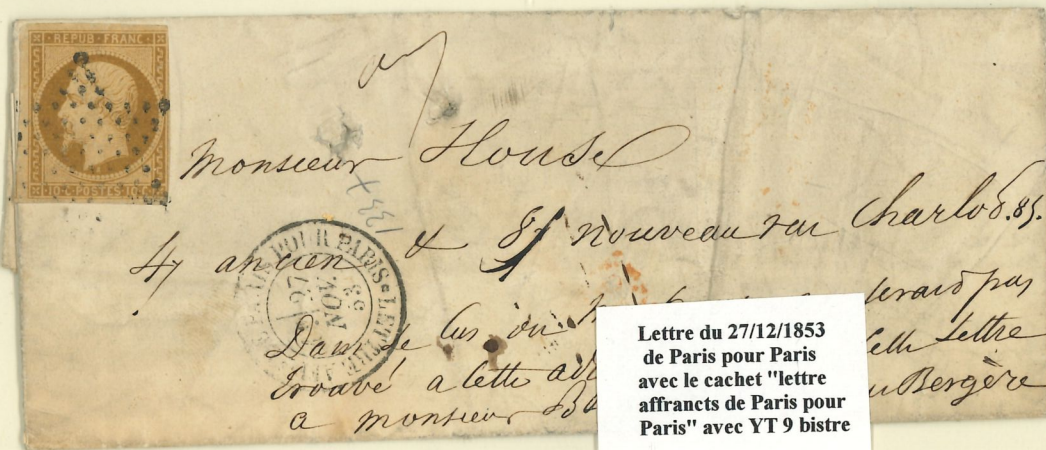 REPUB·FRANC·
10·C·POSTES·10·C
Monsieur House
47 ancien & 87 nouveau rue Charlot. 85.
PARIS POUR PARIS = LETTRE AFF
27
NOV.
53
1397
Dans le cas où pas
trouvé a cette cette Lettre
a monsieur Bergère
Lettre du 27/12/1853
de Paris pour Paris
avec le cachet "lettre
affrancts de Paris pour
Paris" avec YT 9 bistre